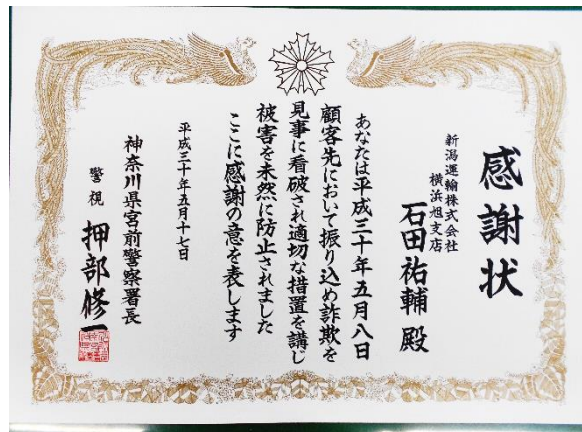 感謝状
新潟運輸株式会社
横浜旭支店
石田祐輔 殿
あなたは平成三十年五月八日
顧客先において振り込め詐欺を
見事に看破され適切な措置を講じ
被害を未然に防止されました
ここに感謝の意を表します
平成三十年五月十七日
神奈川県宮前警察署長
警視 押部修一